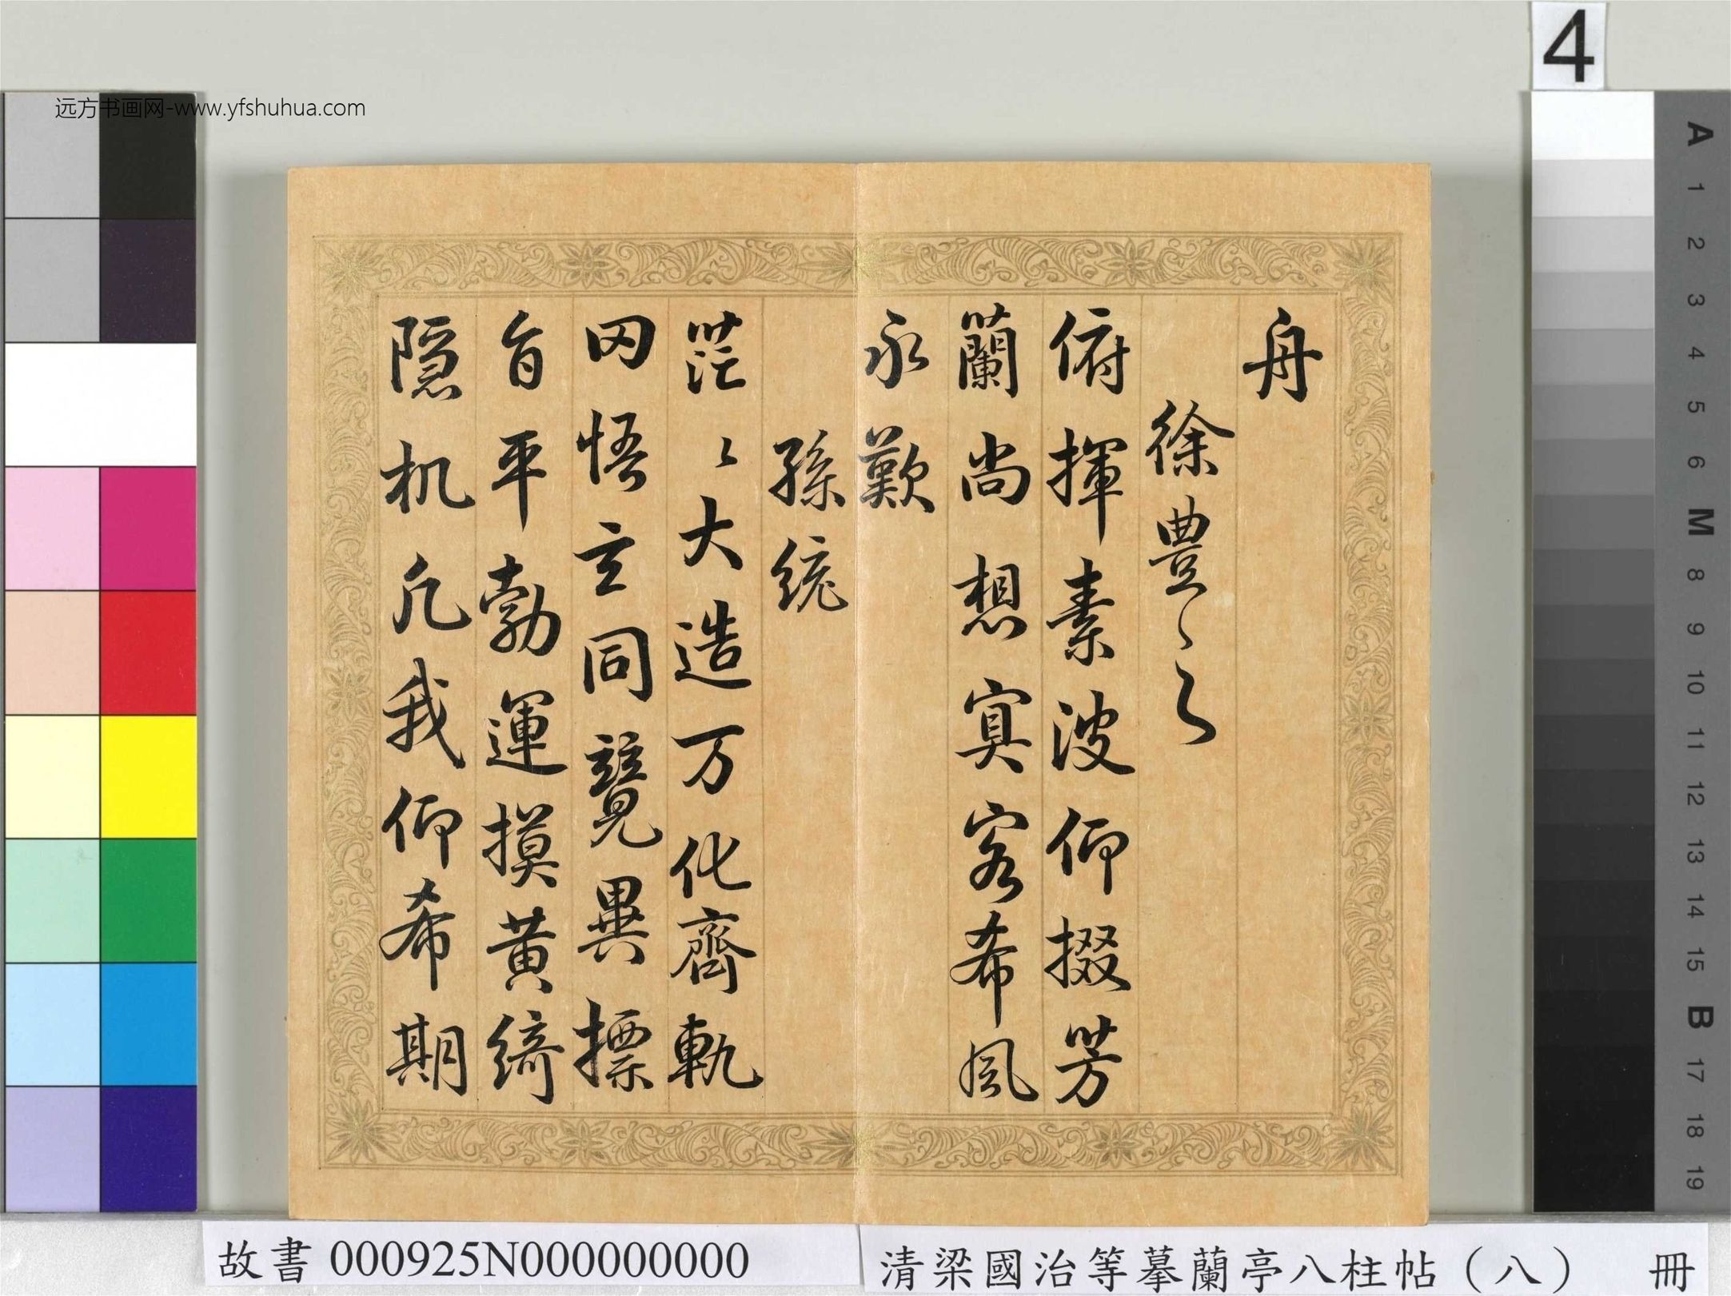 4
远方书画网-www.yfshuhua.com
舟
徐豊〻之
俯揮素波仰掇芳
蘭尚想㝠客希風
永歎
孫統
茫〻大造万化齊軌
罔悟玄同競異摽
旨平勃運摸黄綺
隠机凢我仰希期
A 1 2 3 4 5 6 M 8 9 10 11 12 13 14 15 B 17 18 19
故書 000925N000000000
清梁國治等摹蘭亭八柱帖（八） 冊